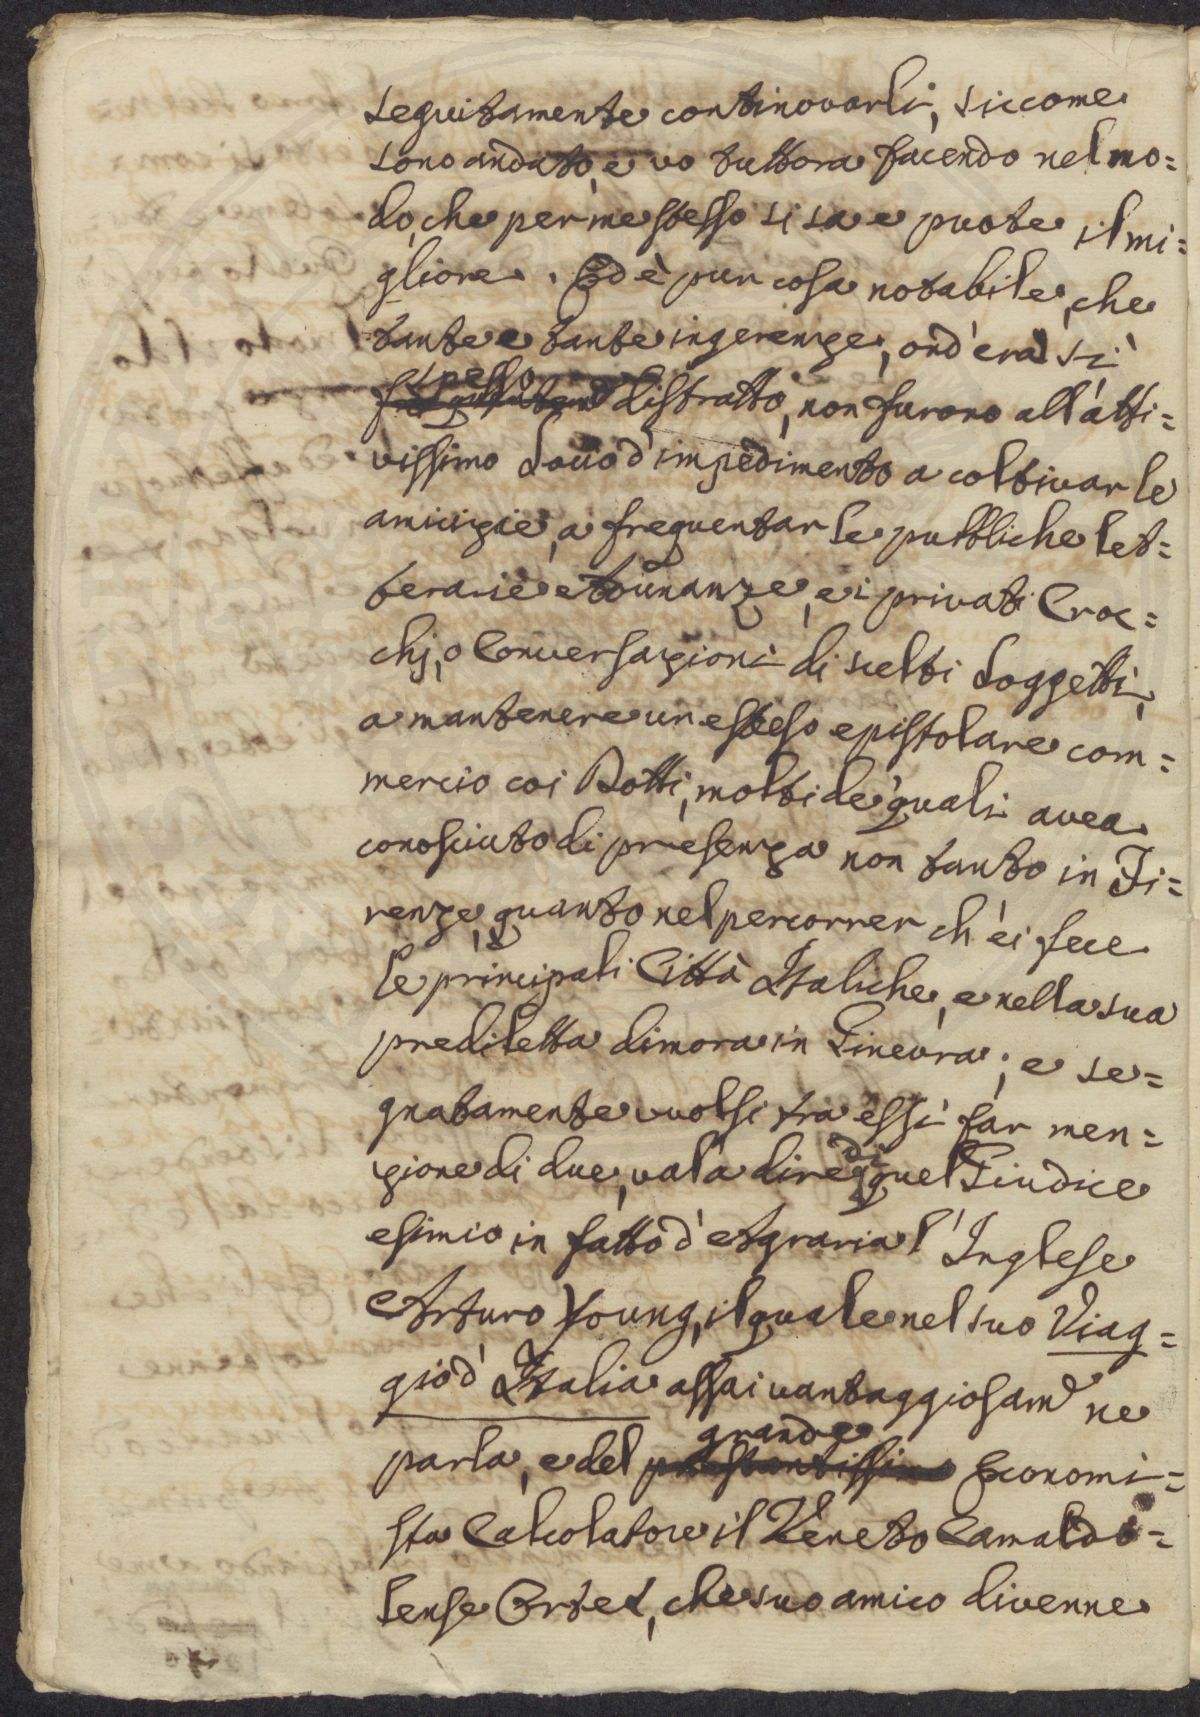 seguitamente continovarli, siccome
sono andato, e vo tuttora facendo nel mo=
do, che per me stesso si sa e puote il mi=
gliore. Ed è pur cosa notabile, che
tante e tante ingerenze, ond'era sì
spesso
distratto, non furono all'atti=
vissimo d'impedimento a coltivar le
amicizie, a frequentar le pubbliche let=
terarie Adunanze, e i privati Croc=
chj, o Conversazioni di scelti Soggetti,
a mantenere un esteso epistolare com=
mercio coi Dotti, molti de' quali avea
conosciuto di presenza non tanto in Fi=
renze, quanto nel percorrer ch'ei fece
le principali Città Italiche, e nella sua
prediletta dimora in Ginevra; e se=
gnatamente vuolsi tra essi far men=
zione di due, val a dire di quel Giudice
esimio in fatto d'Agraria l'Inglese
Arturo Young, il quale nel suo Viag=
gio d'Italia assai vantaggiosam.e ne
parla, e del grande prestantissimo Economi=
sta Calcolatore il Veneto Camaldo=
lense Ortes, che suo amico divenne